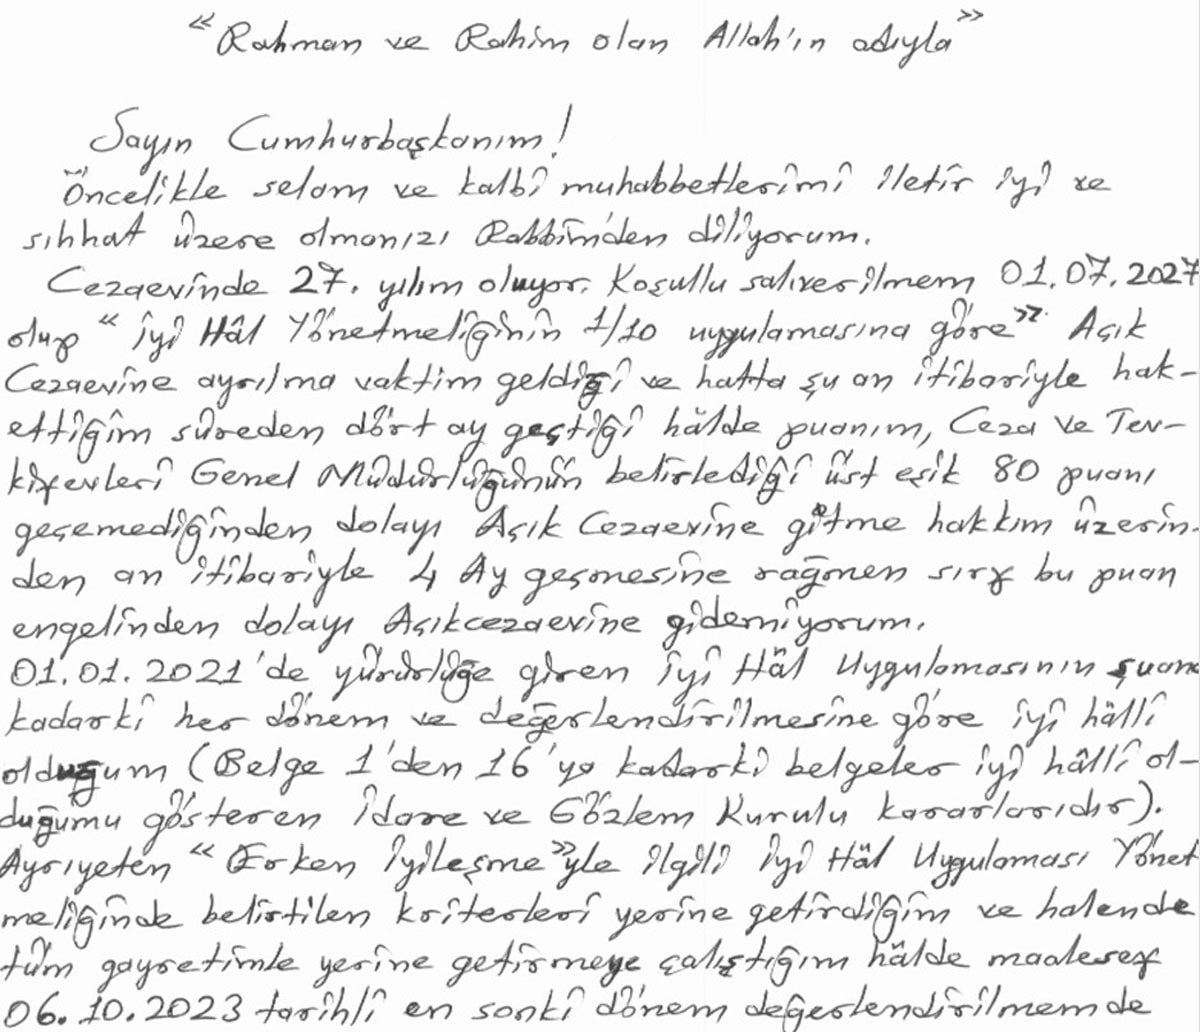 "Rahman ve Rahim olan Allah'ın adıyla"
Sayın Cumhurbaşkanım!
Öncelikle selam ve kalbi muhabbetlerimi iletir iyi ve
sıhhat üzere olmanızı Rabbim'den diliyorum.
Cezaevinde 27. yılım oluyor. Koşullu salıverilmem 01.07.2027
olup "İyi Hâl Yönetmeliğinin 1/10 uygulamasına göre". Açık
Cezaevine ayrılma vaktim geldiği ve hatta şu an itibariyle hak-
ettiğim süreden dört ay geçtiği hâlde puanım, Ceza ve Tev-
kifevleri Genel Müdürlüğünün belirlediği üst eşik 80 puanı
geçemediğinden dolayı Açık Cezaevine gitme hakkım üzerin-
den an itibariyle 4 Ay geçmesine rağmen sırf bu puan
engelinden dolayı Açıkcezaevine gidemiyorum.
01.01.2021'de yürürlüğe giren İyi Hâl Uygulamasının şuana
kadarki her dönem ve değerlendirilmesine göre iyi hâlli
olduğum (Belge 1'den 16'ya kadarki belgeler iyi hâlli ol-
duğumu gösteren İdare ve Gözlem Kurulu kararlarıdır).
Ayrıyeten "Erken İyileşme"yle ilgili İyi Hâl Uygulaması Yönet
meliğinde belirtilen kriterleri yerine getirdiğim ve halende
tüm gayretimle yerine getirmeye çalıştığım hâlde maalesef
06.10.2023 tarihli en sonki dönem değerlendirilmemde